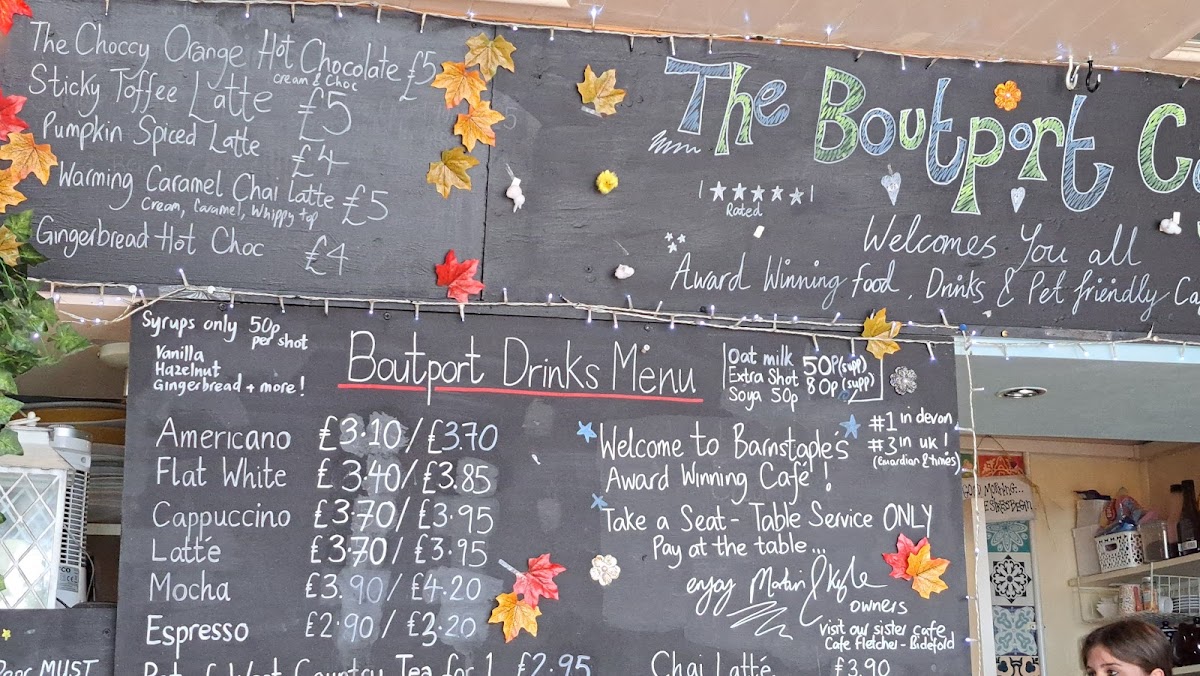 The Choccy Orange Hot Chocolate £5
cream & Choc
Sticky Toffee Latte £5
Pumpkin Spiced Latte £4
Warming Caramel Chai Latte £5
Cream, Caramel, Whippy top
Gingerbread Hot Choc £4
The Boutport Ca
Rated
Welcomes You all
Award Winning food, Drinks & Pet friendly Ca
Syrups only 50p
per shot
Vanilla
Hazelnut
Gingerbread + more!
Boutport Drinks Menu
Oat milk 50p (supp)
Extra Shot 80p (supp)
Soya 50p
Americano £3.10 / £3.70
Flat White £3.40 / £3.85
Cappuccino £3.70 / £3.95
Latté £3.70 / £3.95
Mocha £3.90 / £4.20
Espresso £2.90 / £3.20
Pot of West Country Tea for 1 £2.95
Welcome to Barnstaple's
Award Winning Café!
#1 in devon
#3 in uk!
Take a Seat - Table Service ONLY
Pay at the table...
enjoy
owners
visit our sister cafe
Cafe Fletcher - Bideford
Chai Latté £3.90
MUST
MORNING...